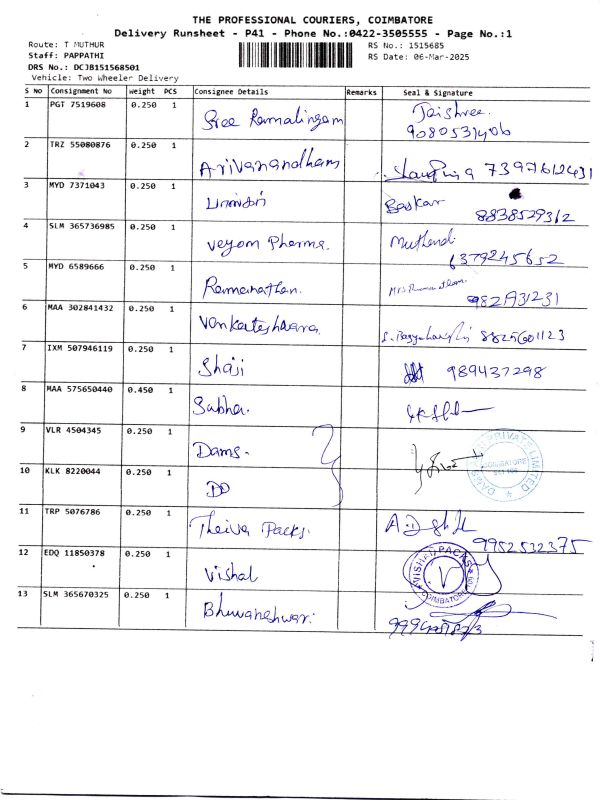 THE PROFESSIONAL COURIERS, COIMBATORE
Delivery Runsheet - P41 - Phone No.:0422-3505555 - Page No.:1
Route: T MUTHUR RS No.: 1515685
Staff: PAPPATHI RS Date: 06-Mar-2025
DRS No.: DCJB151568501
Vehicle: Two Wheeler Delivery
S No Consignment No Weight PCS Consignee Details Remarks Seal & Signature
1 PGT 7519608 0.250 1 Sree Ramalingam Jaishree.
9080531406
2 TRZ 55080876 0.250 1 Arivanandham 7397612431
3 MYD 7371043 0.250 1 Baskar
8838529312
4 SLM 365736985 0.250 1 Veyom Pharma.
6379245652
5 MYD 6589666 0.250 1 Ramanathan.
6 MAA 302841432 0.250 1 Venkateshwara 8825601123
7 IXM 507946119 0.250 1 Shaji 989437298
8 MAA 575650440 0.450 1 Sabha.
9 VLR 4504345 0.250 1 Dams.
PRIVATE LIMITED
COIMBATORE
10 KLK 8220044 0.250 1 DO
11 TRP 5076786 0.250 1 Theiva Packs.
9952532375
12 EDQ 11850378 0.250 1 Vishal
COIMBATORE
13 SLM 365670325 0.250 1 Bhuvaneshwari